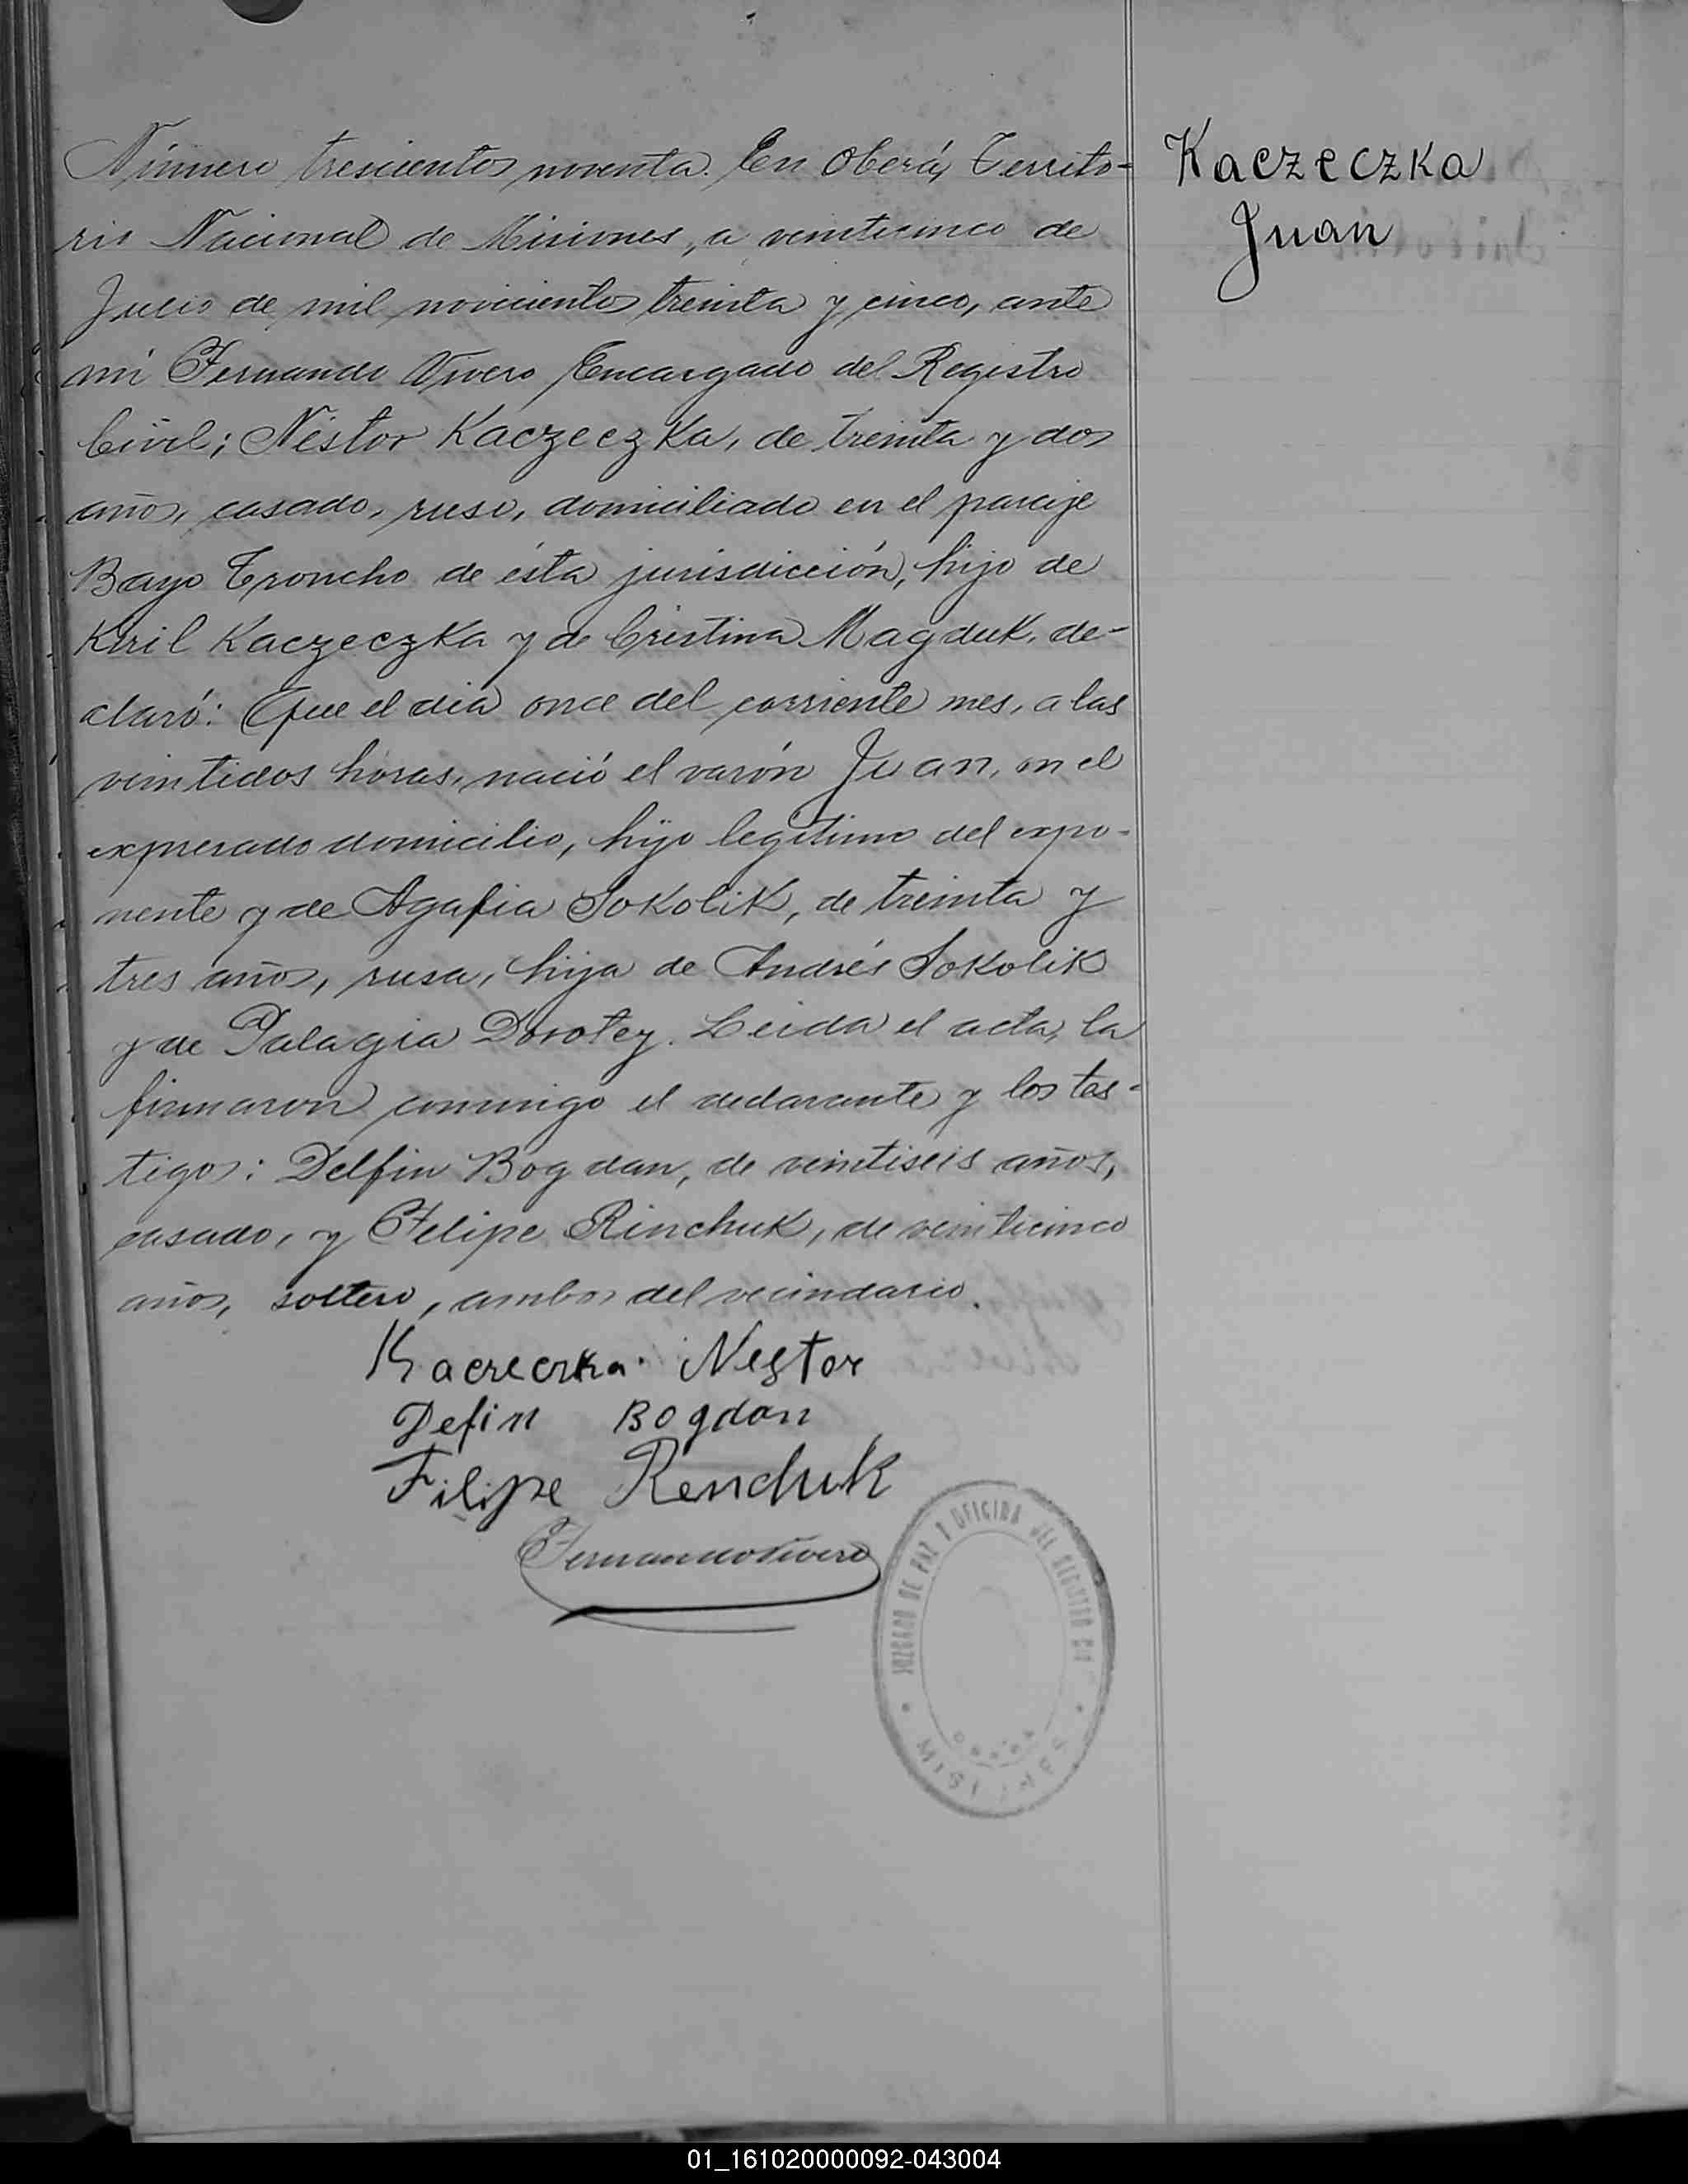 Número trescientos noventa. En Oberá, Territo-
rio Nacional de Misiones, a veinticinco de
Julio de mil novecientos treinta y cinco, ante
mí Fernando Vivero Encargado del Registro
Civil; Néstor Kaczeczka, de treinta y dos
años, casado, ruso, domiciliado en el paraje
Bayo Troncho de ésta jurisdicción, hijo de
Kiril Kaczeczka y de Cristina Magduk, de-
claró: Que el día once del corriente mes, a las
veintidos horas, nació el varón Juan, en el
expresado domicilio, hijo legítimo del expo-
nente y de Agafia Sokolik, de treinta y
tres años, rusa, hija de Andrés Sokolik
y de Palagia Dorotey. Leída el acta, la
firmaron conmigo el declarante y los tes-
tigos: Delfin Bogdan, de veintiseis años,
casado, y Felipe Rinchuk, de veinticinco
años, soltero, ambos del vecindario.
Kaczeczka Nestor
Defin Bogdan
Filipe Renchuk
Fernando Vivero
Kaczeczka
Juan
JUZGADO DE PAZ Y OFICINA DEL REGISTRO CIV
MISIONES
01_161020000092-043004